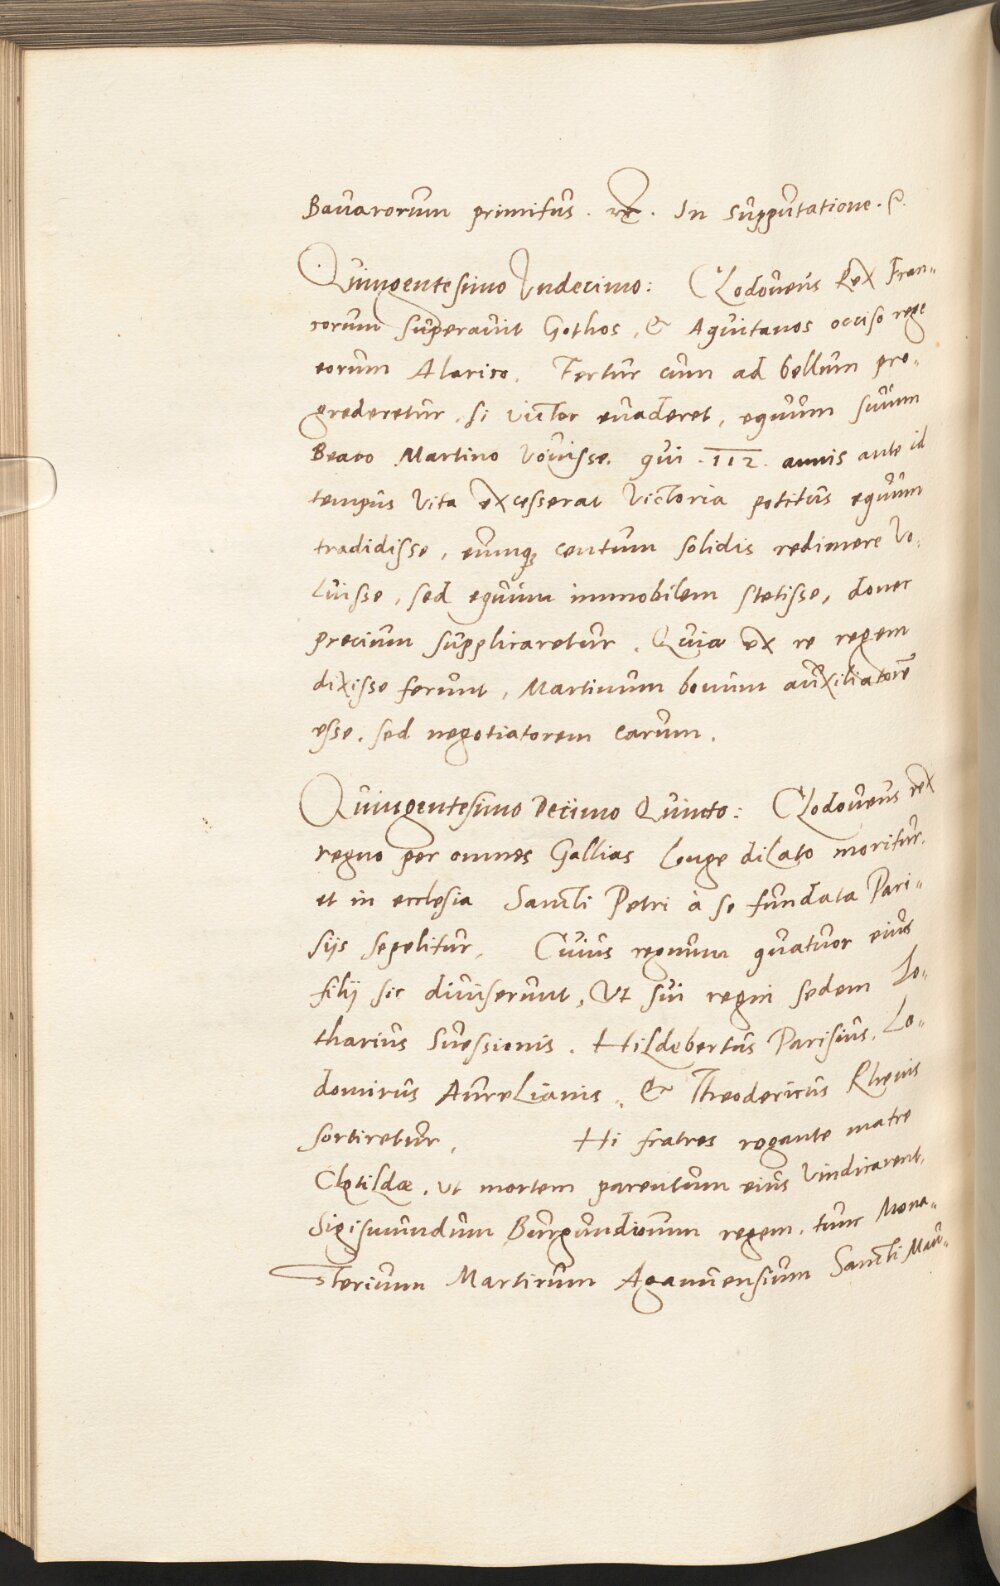 Bavarorum primitus. rex. In supputatione. &.
Quingentesimo Undecimo: Clodoveus Rex Fran-
corum superavit Gothos, & Aquitanos occiso rege
eorum Alarico. Fertur cum ad bellum pro-
grederetur, si victor evaderet, equum suum
Beato Martino vovisse. qui .112. annis ante id
tempus vita excesserat Victoria potitus equum
tradidisse, eumq; centum solidis redimere vo-
luisse, sed equum immobilem stetisse, donec
precium supplicaretur. Quia ex re regem
dixisse ferunt, Martinum bonum auxiliatorē
esse. sed negotiatorem carum.
Quingentesimo Decimo Quinto: Clodoveus rex
regno per omnes Gallias longe dilato moritur.
et in ecclesia Sancti Petri à se fundata Pari-
sijs sepelitur. Cuius regnum quatuor eius
filij sic diviserunt, Ut sui regni sedem Lo-
tharius Suessionis. Hildebertus Parisius. Lo-
domirus Aurelianis. & Theodericus Rhemis
sortiretur. Hi fratres rogante matre
Clotildæ. ut mortem parentum eius vindicarent.
Sigismundum Burgundionum regem. tunc Mona-
sterium Martirum Agaunensium Sancti Mau-